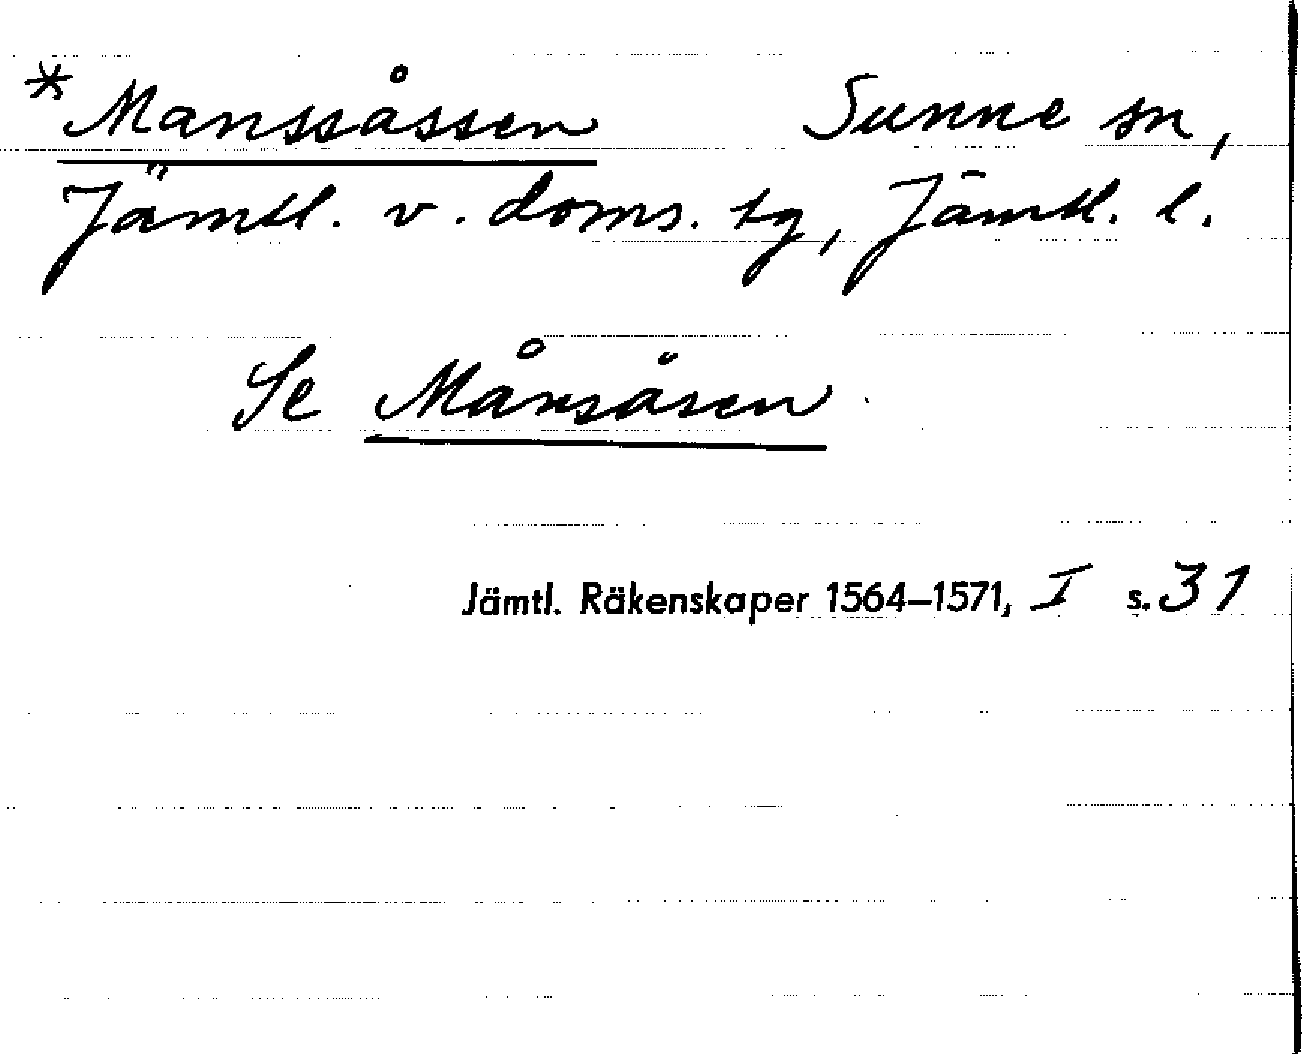 *Manssåssen Sunne sn,
Jämtl. v. doms. tg, Jämtl. l.
Se Månsåsen
Jämtl. Räkenskaper 1564–1571, I s. 31